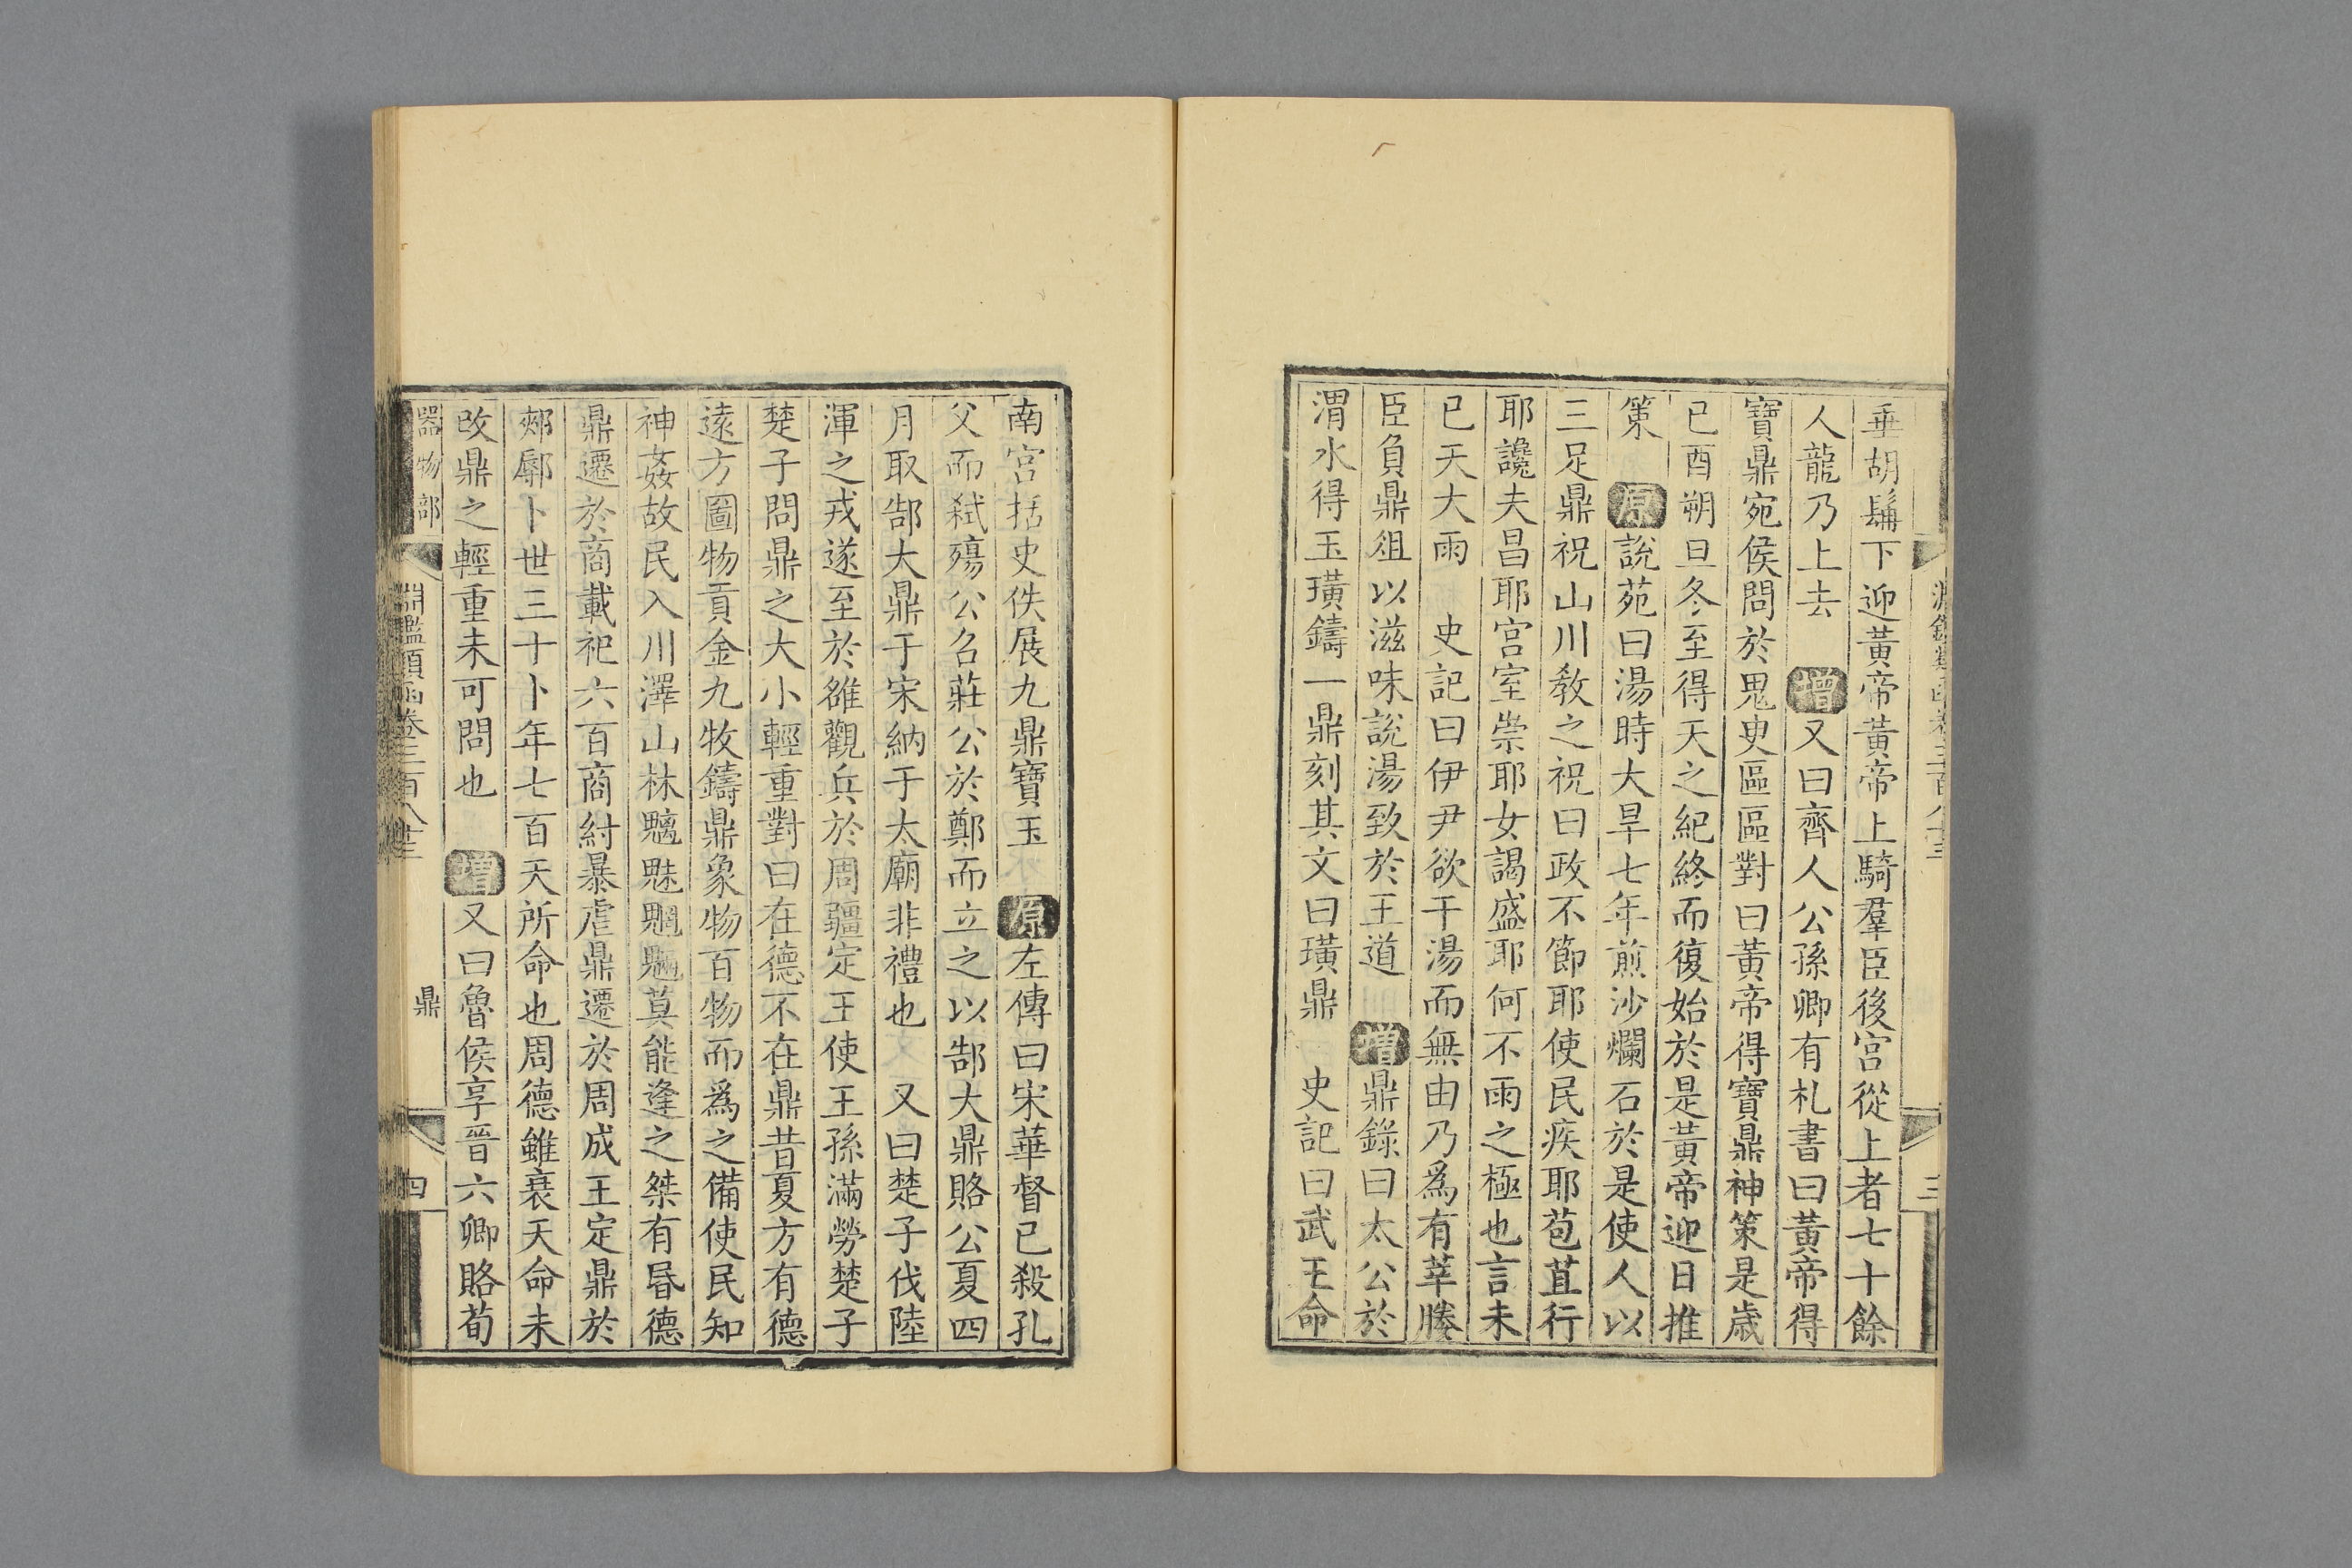 垂胡髯下迎黃帝黃帝上騎羣臣後宮從上者七十餘
人龍乃上去 增又曰齊人公孫卿有札書曰黃帝得
寶鼎宛侯問於鬼臾區區對曰黃帝得寶鼎神策是歲
已酉朔旦冬至得天之紀終而復始於是黃帝迎日推
策 原說苑曰湯時大旱七年煎沙爛石於是使人以
三足鼎祝山川敎之祝曰政不節耶使民疾耶苞苴行
耶讒夫昌耶宮室崇耶女謁盛耶何不雨之極也言未
已天大雨 史記曰伊尹欲干湯而無由乃爲有莘媵
臣負鼎俎以滋味說湯致於王道 增鼎錄曰太公於
渭水得玉璜鑄一鼎刻其文曰璜鼎 史記曰武王命
南宮括史佚展九鼎寶玉 原左傳曰宋華督已殺孔
父而弒殤公召莊公於鄭而立之以郜大鼎賂公夏四
月取郜大鼎于宋納于太廟非禮也 又曰楚子伐陸
渾之戎遂至於雒觀兵於周疆定王使王孫滿勞楚子
楚子問鼎之大小輕重對曰在德不在鼎昔夏方有德
遠方圖物貢金九牧鑄鼎象物百物而爲之備使民知
神姦故民入川澤山林魑魅魍魎莫能逢之桀有昏德
鼎遷於商載祀六百商紂暴虐鼎遷於周成王定鼎於
郟鄏卜世三十卜年七百天所命也周德雖衰天命未
改鼎之輕重未可問也 增又曰魯侯享晉六卿賂荀
器物部 淵鑑類函卷三百八十三 鼎 四